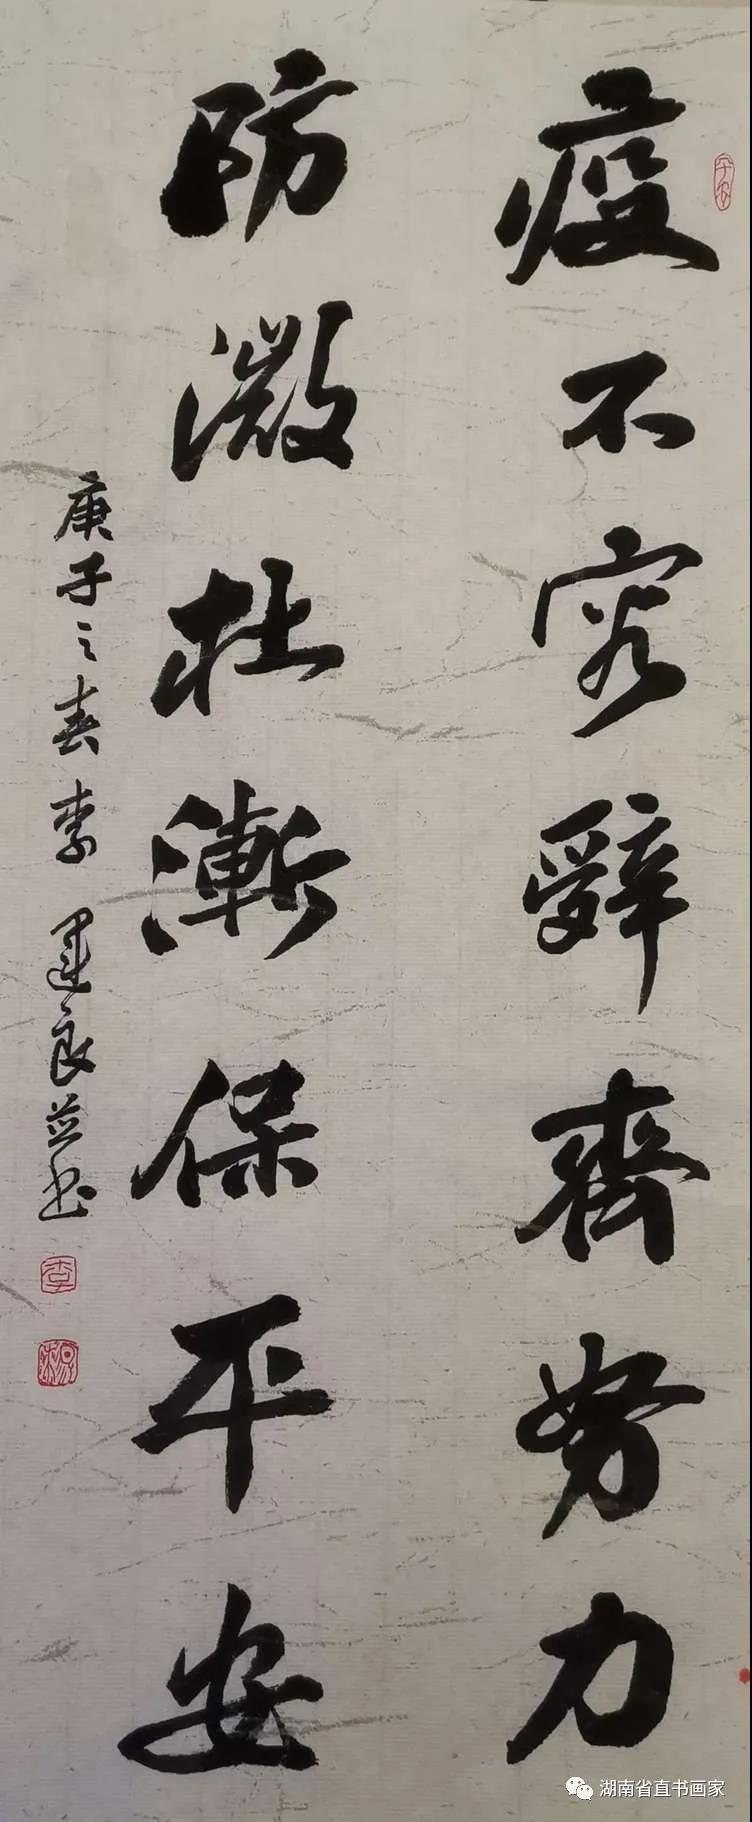 疫不容辭齊努力
防微杜漸保平安
庚子之春李建良并书
李
湖南省直书画家